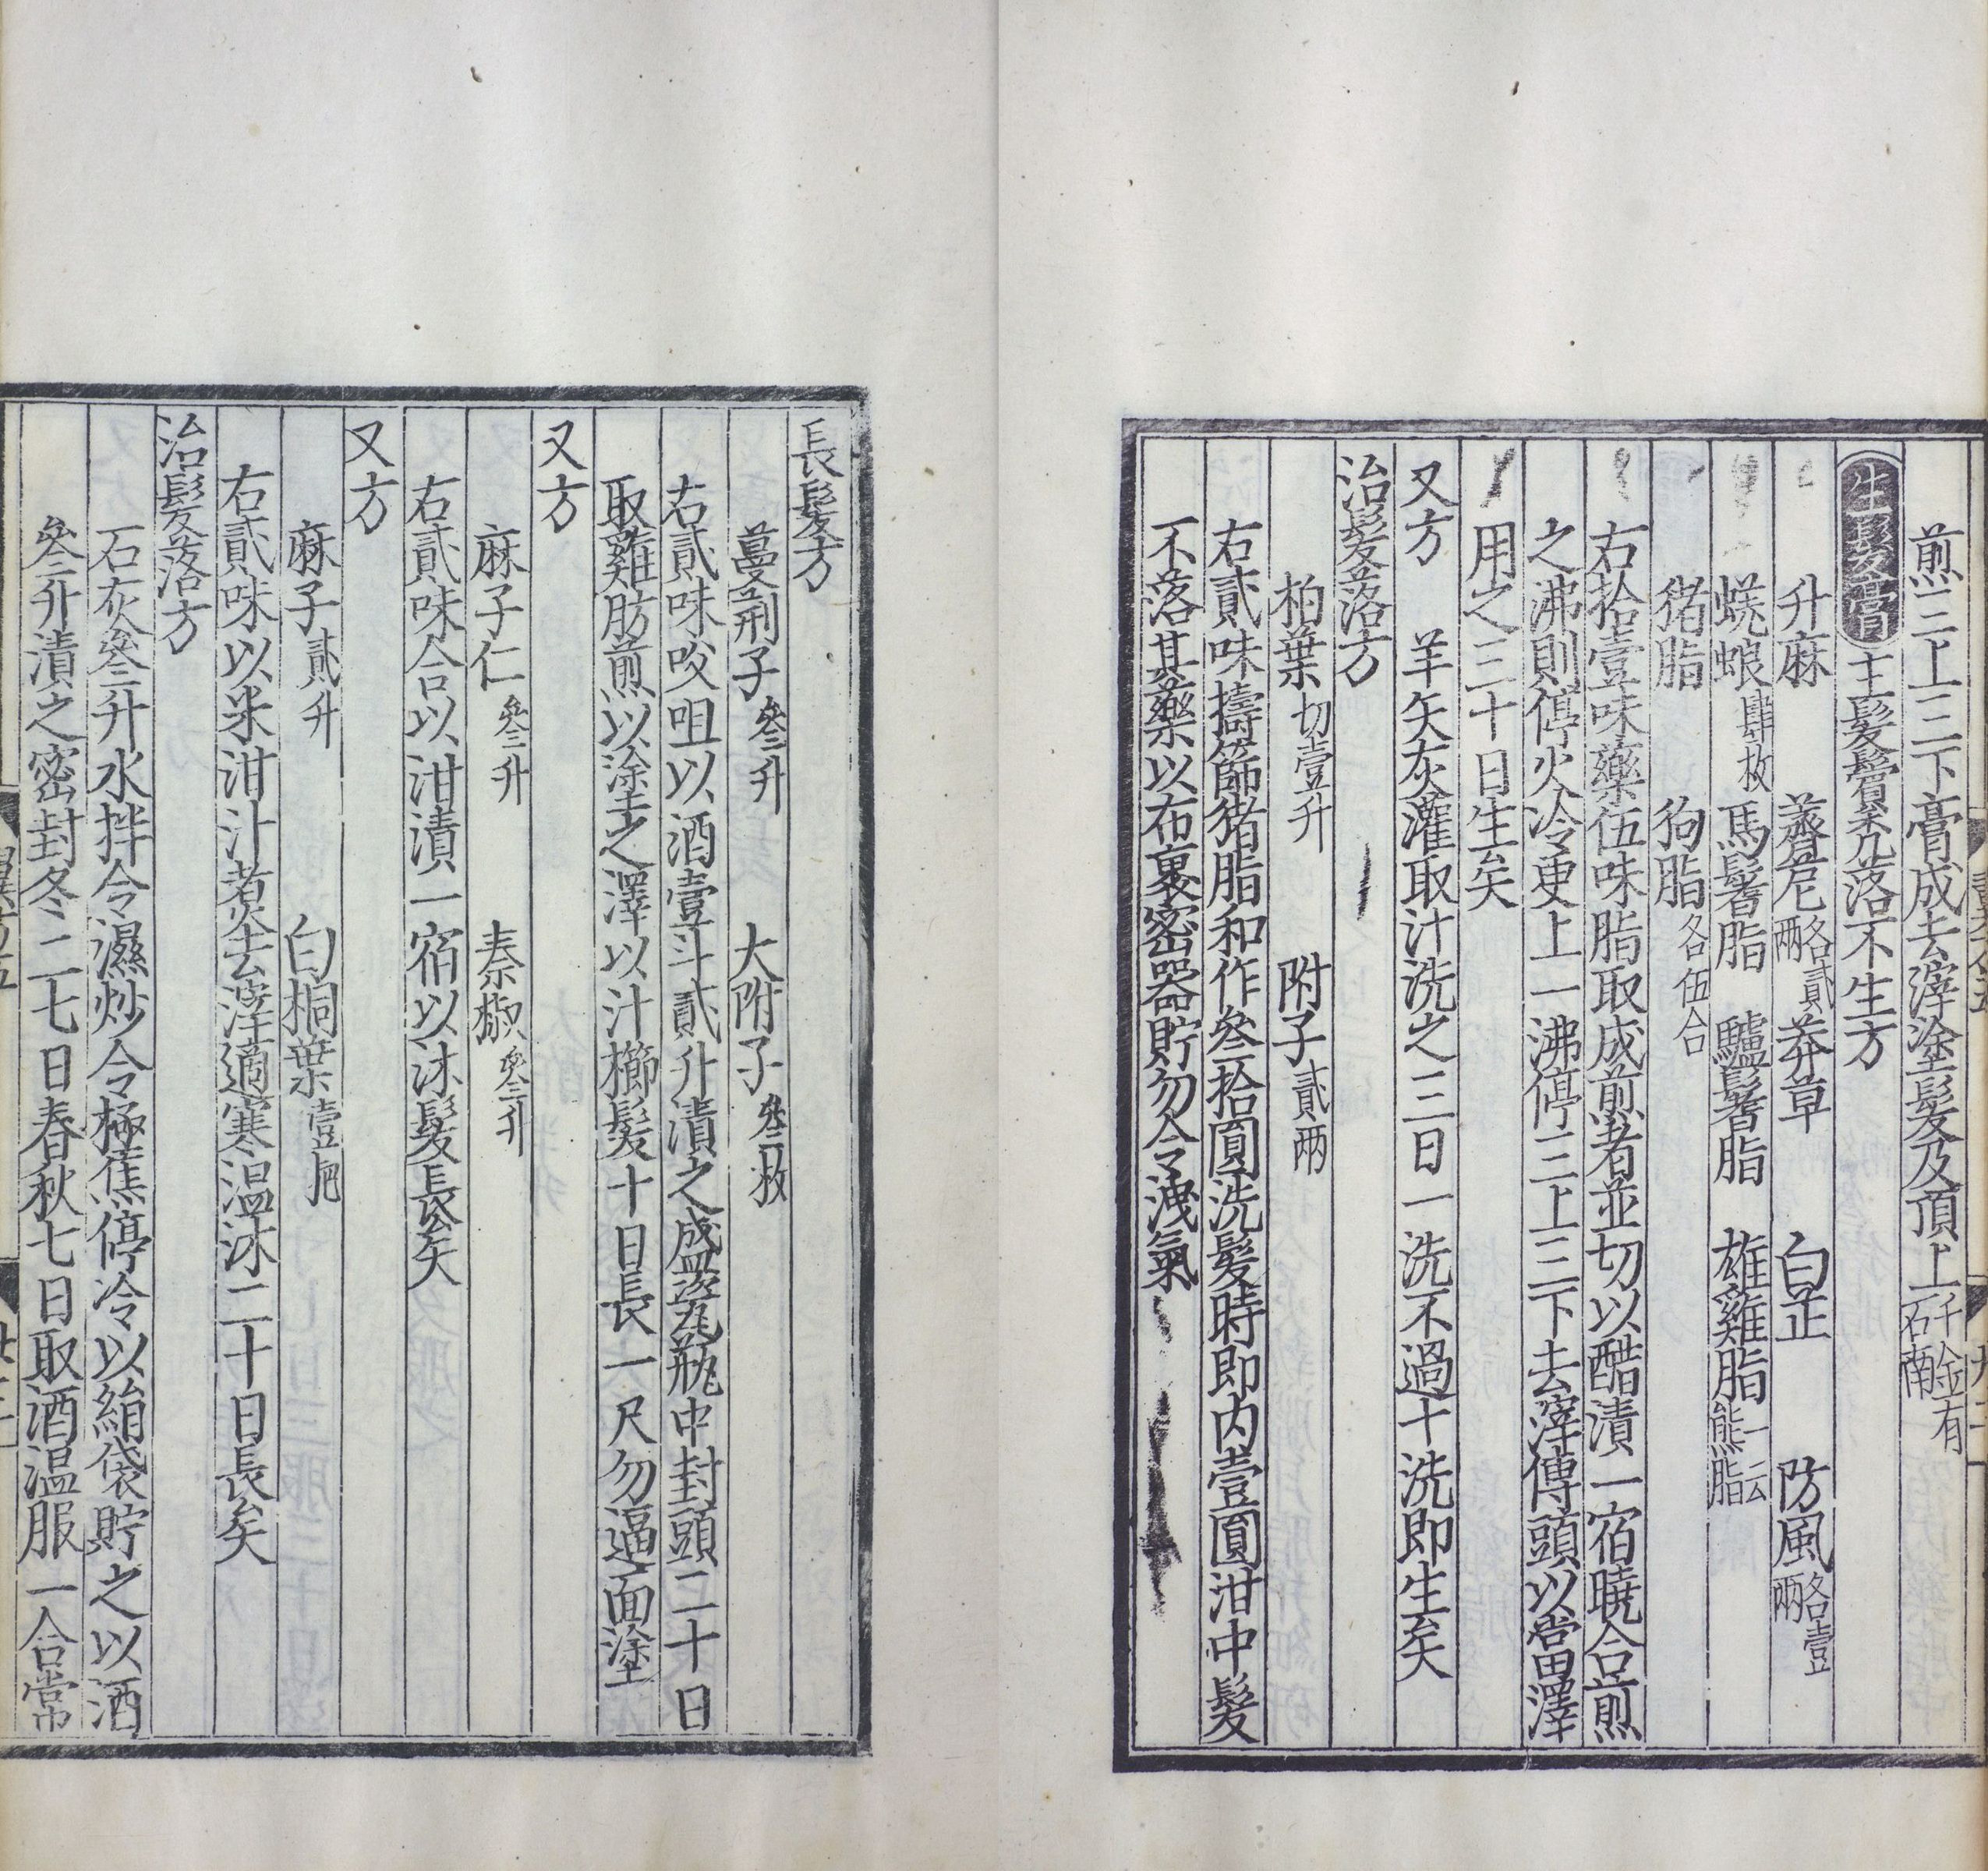 煎三上三下膏成去滓塗髮及頂上千金有石南
生髮膏主髮鬢禿落不生方
升麻 薺苨各貳兩 莽草 白芷 防風各壹兩
蜣蜋肆枚 馬鬐脂 驢鬐脂 雄雞脂一云熊脂
猪脂 狗脂各伍合
右拾壹味藥伍味脂取成煎者並切以醋漬一宿曉合煎
之沸則停火冷更上一沸停三上三下去滓傅頭以當澤
用之三十日生矣
又方 羊矢灰灌取汁洗之三日一洗不過十洗即生矣
治髮落方
柏葉切壹升 附子貳兩
右貳味擣篩猪脂和作叁拾圓洗髮時即内壹圓泔中髮
不落其藥以布裹密器貯勿令洩氣
長髮方
蔓荆子叁升 大附子叁枚
右貳味㕮咀以酒壹斗貳升漬之盛瓷瓶中封頭二十日
取雞肪煎以塗之澤以汁櫛髮十日長一尺勿逼面塗
又方
麻子仁叁升 秦椒叁升
右貳味合以泔漬一宿以沐髮長矣
又方
麻子貳升 白桐葉壹把
右貳味以米泔汁煮去滓適寒温沐二十日長矣
治髮落方
石灰叁升水拌令濕炒令極焦停冷以絹袋貯之以酒
叁升漬之密封冬二七日春秋七日取酒温服一合常